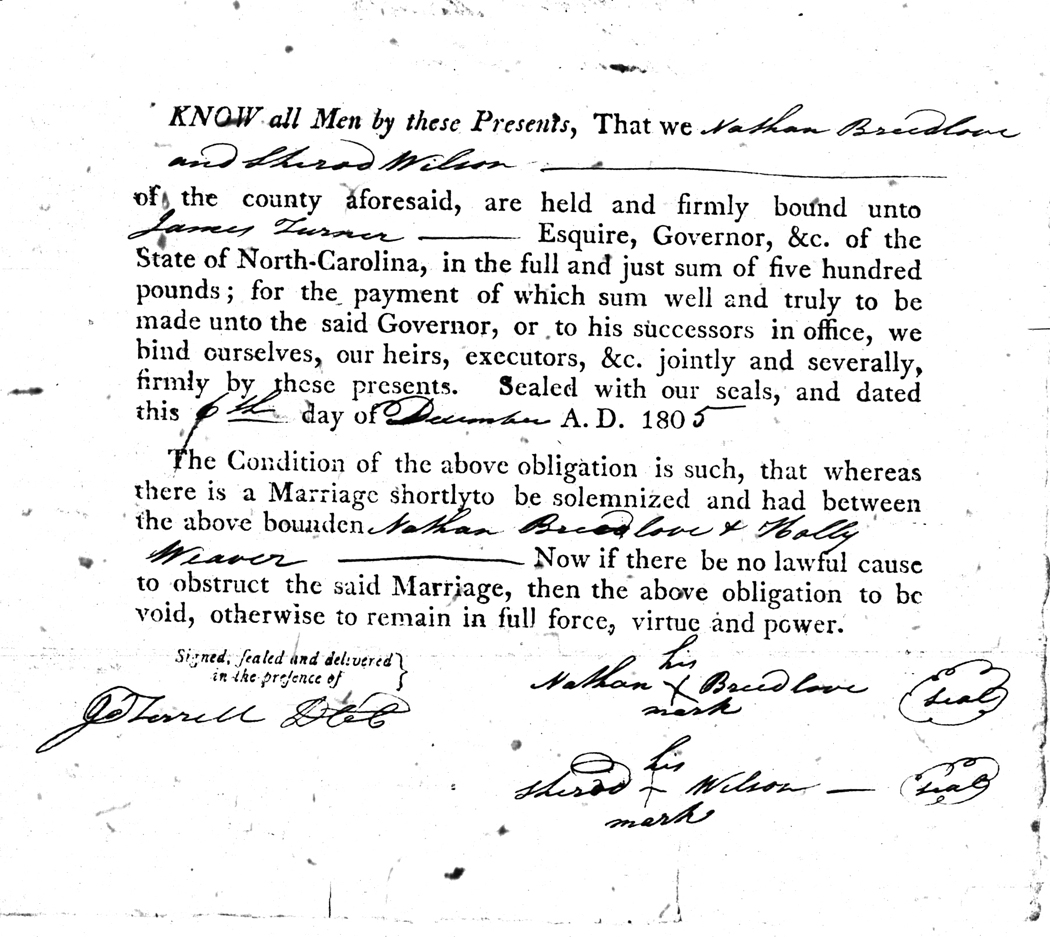 KNOW all Men by these Presents, That we Nathan Breedlove
and Sherod Wilson
of the county aforesaid, are held and firmly bound unto
James Turner Esquire, Governor, &c. of the
State of North-Carolina, in the full and just sum of five hundred
pounds; for the payment of which sum well and truly to be
made unto the said Governor, or to his successors in office, we
bind ourselves, our heirs, executors, &c. jointly and severally,
firmly by these presents. Sealed with our seals, and dated
this 6th day of December A. D. 1805
The Condition of the above obligation is such, that whereas
there is a Marriage shortlyto be solemnized and had between
the above bounden Nathan Breedlove & Holly
Weaver Now if there be no lawful cause
to obstruct the said Marriage, then the above obligation to be
void, otherwise to remain in full force, virtue and power.
Signed, sealed and delivered
in the presence of
his
Nathan X Breedlove seal
mark
Jo Terrell DCC
his
Sherod + Wilson seal
mark